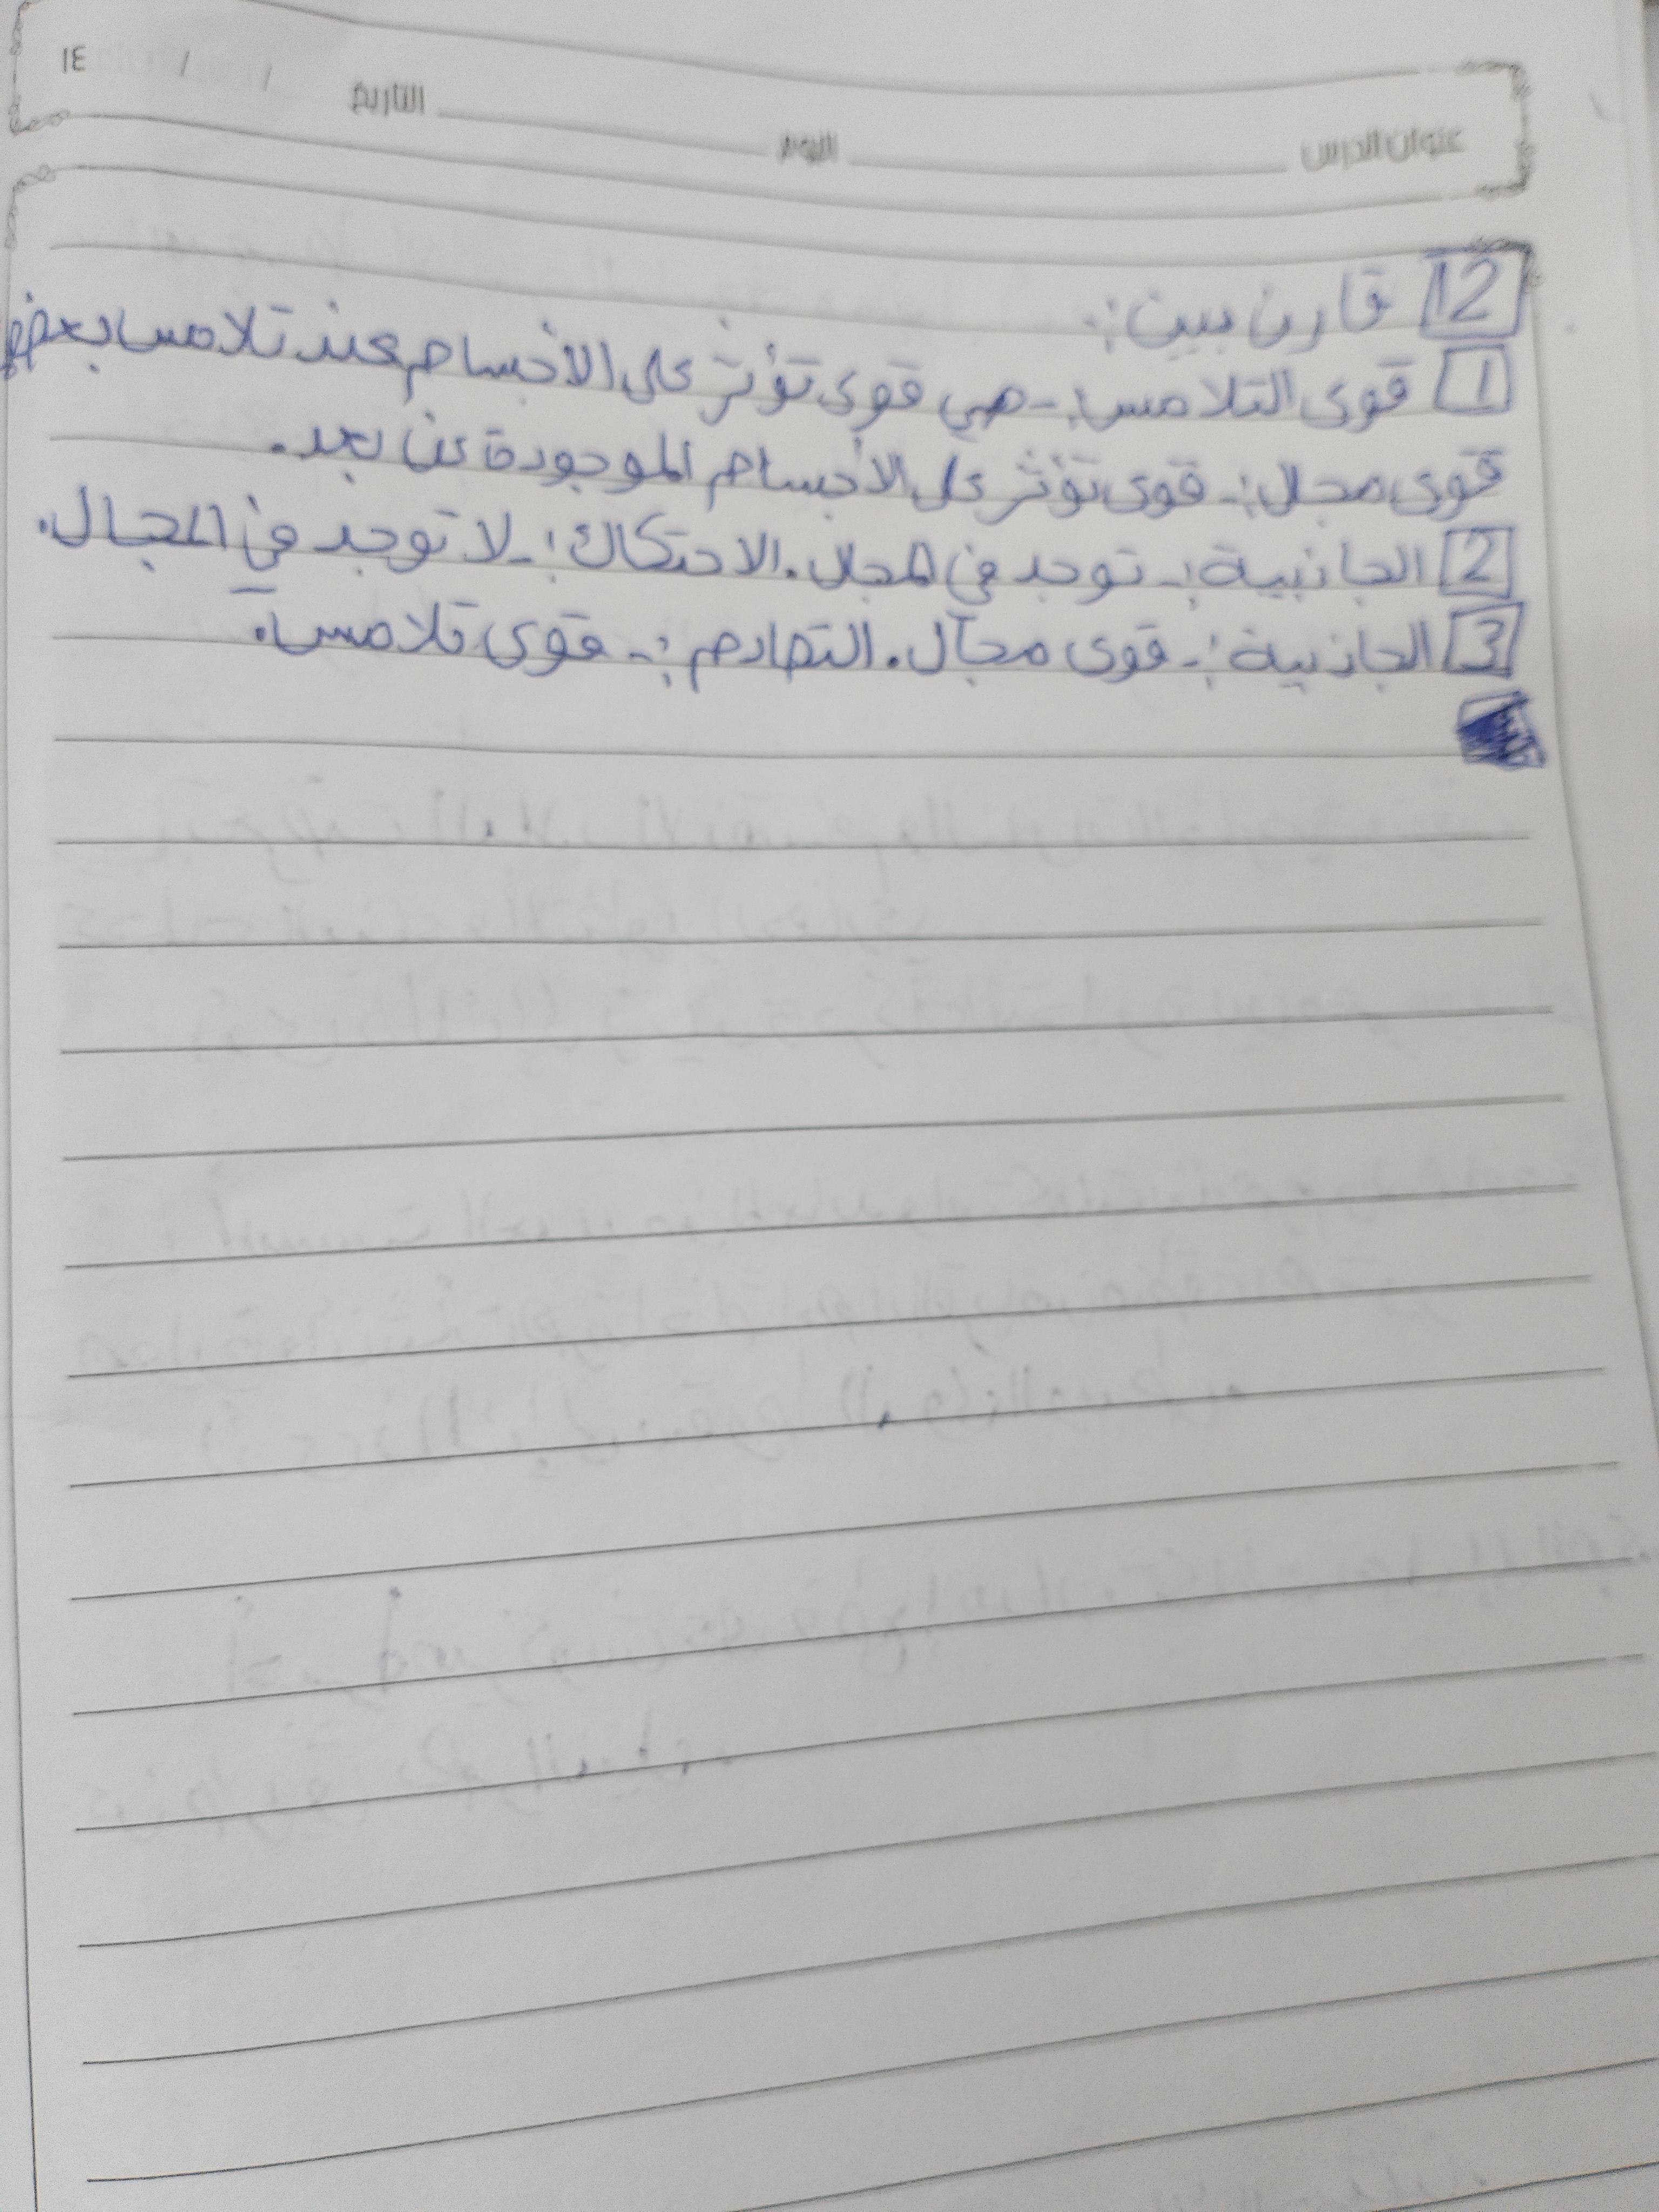 عنوان الدرس اليوم التاريخ / / ١٤
12 قارن بين :-
1 قوى التلامس :- هي قوى تؤثر على الأجسام عند تلامس بعضها
قوى مجال :- قوى تؤثر على الأجسام الموجودة عن بعد.
2 الجاذبية :- توجد في المجال. الاحتكاك :- لا توجد في المجال.
3 الجاذبية :- قوى مجال. التصادم :- قوى تلامس.